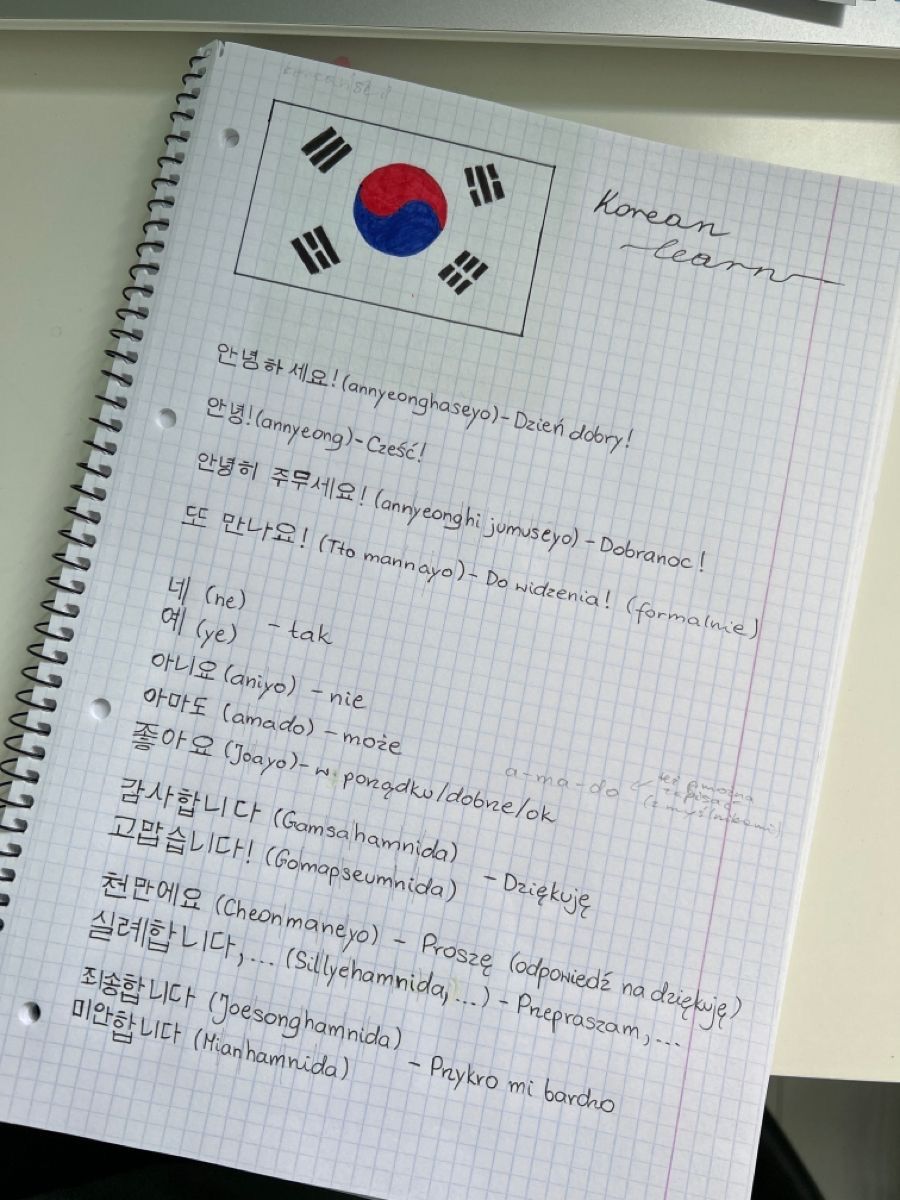 Korean
learn
안녕하세요! (annyeonghaseyo) - Dzień dobry!
안녕! (annyeong) - Cześć!
안녕히 주무세요! (annyeonghi jumuseyo) - Dobranoc!
또 만나요! (Tto mannayo) - Do widzenia! (formalnie)
네 (ne)
예 (ye) - tak
아니요 (aniyo) - nie
아마도 (amado) - może
a-ma-do
też można
zapisać
(z myślnikami)
좋아요 (Joayo) - w porządku/dobrze/ok
감사합니다 (Gamsahamnida)
고맙습니다! (Gomapseumnida) - Dziękuję
천만에요 (Cheonmaneyo) - Proszę (odpowiedź na dziękuję)
실례합니다,... (Sillyehamnida,...) - Przepraszam,...
죄송합니다 (Joesonghamnida)
미안합니다 (Mianhamnida) - Przykro mi bardzo